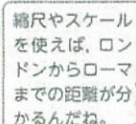 縮尺やスケール
を使えば，ロン
ドンからローマ
までの距離が分
かるんだね。